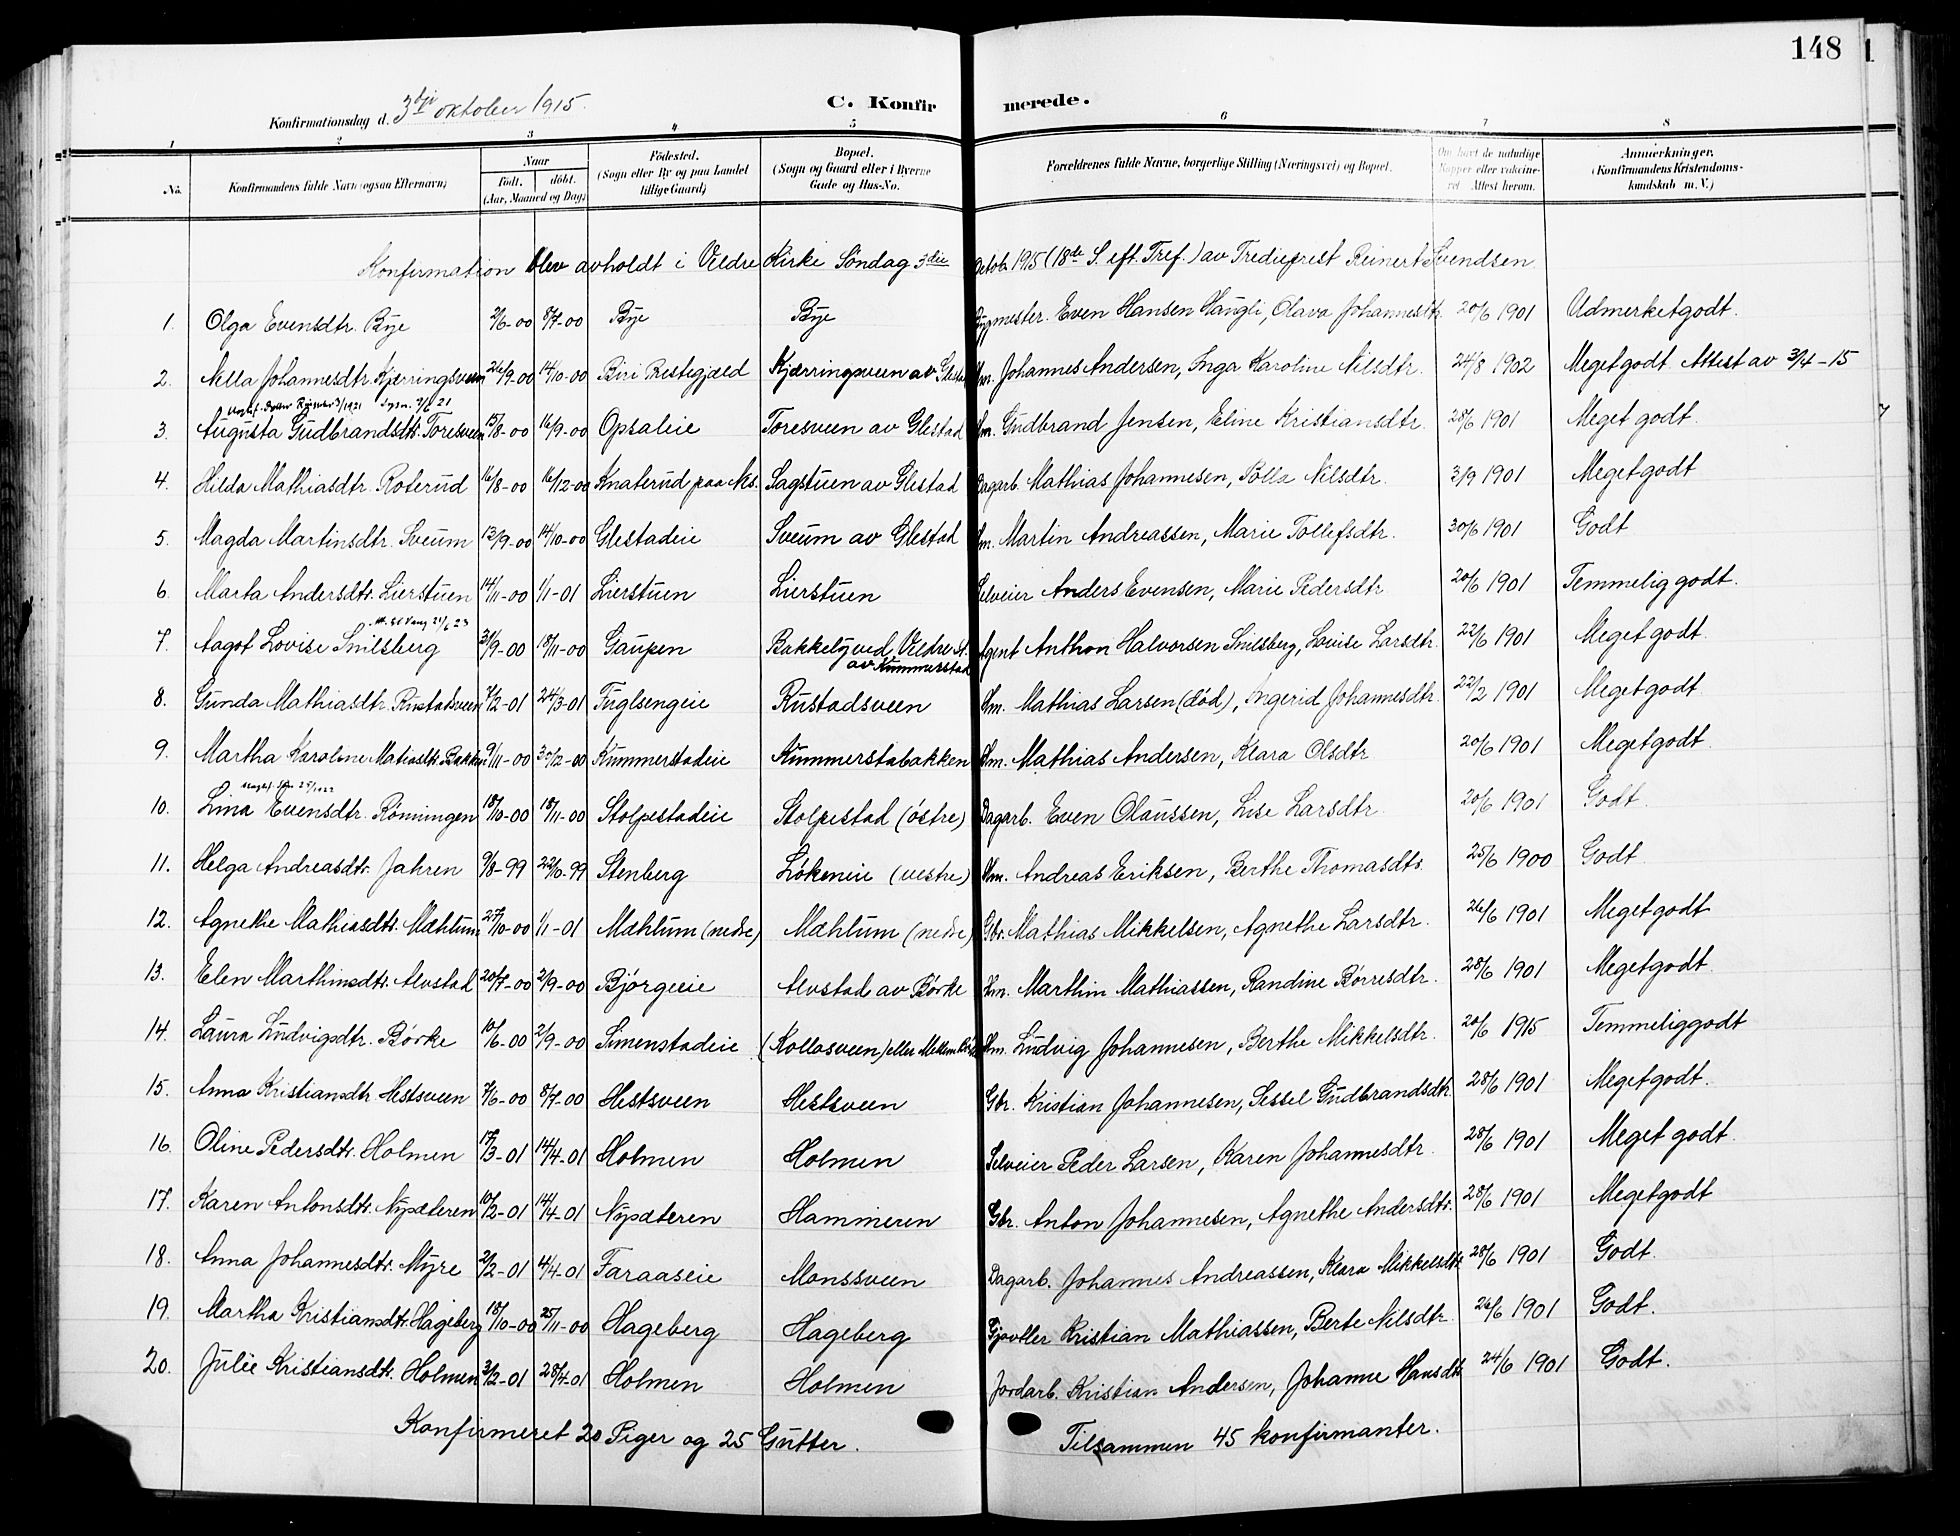 148
Konfirmationsdag d. 3die oktober 1915.
C. Konfirmerede.
1 2 3 4 5 6 7 8
No. Konfirmandens fulde Navn (ogsaa Efternavn) Naar født. døbt. (Aar, Maaned og Dag) Fødested. (Sogn eller By og paa Landet tillige Gaard) Bopæl. (Sogn og Gaard eller i Byerne Gade og Hus-No. Forældrenes fulde Navne, borgerlige Stilling (Næringsvei) og Bopæl. Om havt de naturlige Kopper eller vaccineret Attest herom. Anmærkninger. (Konfirmandens Kristendomskundskab m. V.)
Konfirmation blev avholdt i Veldre Kirke Söndag 3die Octob. 1915 (18de S. eft. Tref.) av Trædieprest Reinert Svendsen.
1. Olga Evensdtr. Bye 2/6-00 8/7-00 Bye Bye Bygmester. Even Hansen Haugli, Olava Johannesdtr. 20/6 1901 Udmerketgodt.
2. Nella Johannesdtr. Kjærringsveen 26/9-00 14/10-00 Biri Prestegjæld Kjærringsveen av Glestad Hm. Johannes Andersen, Inga Karoline Nilsdtr. 24/8 1902 Megetgodt. Attest av 3/4-15
3. Augusta Gudbrandsdtr. Toresveen 15/8-00 16/9-00 Opsaleie Toresveen av Glestad Hm. Gudbrand Jensen, Eline Kristiansdtr. 28/6 1901 Meget godt.
4. Hilda Mathiasdtr. Roterud 16/8-00 16/12-00 Knaterud paa Nes. Sagstuen av Glestad Dagarb. Mathias Johannesen, Polla Nilsdtr. 3/9 1901 Megetgodt
5. Magda Martinsdtr. Sveum 13/9-00 14/10-00 Glestadeie Sveum av Glestad Hm. Martin Andreassen, Marie Tollefsdtr. 30/6 1901 Godt
6. Marta Andersdtr. Lierstuen 14/11-00 1/1-01 Lierstuen Lierstuen Selveier Anders Evensen, Marie Pedersdtr. 20/6 1901 Temmelig godt.
7. Aagot Lovise Smilsberg 3/9-00 18/11-00 Gaupen Bakkely ved Veldre st. av Kummerstad Agent Anthon Halvorsen Smilsberg, Louise Larsdtr. 22/6 1901 Megetgodt.
8. Gunda Mathiasdtr. Rustadsveen 7/2-01 24/3-01 Fuglsengeie Rustadsveen Hm. Mathias Larsen (död), Ingerid Johannesdtr. 22/2 1901 Megetgodt
9. Martha Karoline Matiasdtr. Bakken 9/11-00 30/12-00 Kummerstadeie Kummerstabakken Hm. Mathias Andersen, Klara Olsdtr 20/6 1901 Megetgodt.
10. Lina Evensdtr. Rönningen 18/10-00 18/11-00 Stolpestadeie Stolpestad (östre) Dagarb. Even Olaussen, Lise Larsdtr. 20/6 1901 Godt.
11. Helga Andreasdtr. Jahren 9/8-99 22/10-99 Stenberg Lökeneie (vestre) Hm. Andreas Eriksen, Berthe Thomasdtr. 25/6 1900 Godt.
12. Agnethe Mathiasdtr. Mæhlum 27/10-00 1/1-01 Mæhlum (nedre) Mæhlum (nedre) Gbr. Mathias Mikkelsen, Agnethe Larsdtr. 26/6 1901 Megetgodt
13. Elen Marthinsdtr. Alvstad 20/7-00 2/9-00 Bjørgeeie Alvstad av Børke Hm. Marthin Mathiassen, Randine Børresdtr. 28/6 1901 Megetgodt.
14. Laura Ludvigsdtr. Børke 10/6-00 2/9-00 Simenstadeie (Kollosveen) eller Mellem Hm. Ludvig Johannesen, Berthe Mikkelsdtr. 20/6 1915 Temmeliggodt
15. Anna Kristiansdtr. Hestsveen 7/6-00 8/7-00 Hestsveen Hestsveen Gbr. Kristian Johannesen, Sessel Gudbrandsdtr. 28/6 1901 Megetgodt.
16. Oline Pedersdtr. Holmen 17/3-01 14/4-01 Holmen Holmen Selveier Peder Larsen, Karen Johannesdtr. 28/6 1901 Meget godt.
17. Karen Antonsdtr. Nysæteren 10/2-01 14/4-01 Nysæteren Hammeren Gbr. Anton Johannesen, Agnethe Andersdtr. 28/6 1901 Megetgodt
18. Anna Johannesdtr. Myre 2/2-01 4/4-01 Faraaseie Monssveen Dagarb. Johannes Andreassen, Klara Mikkelsdtr. 28/6 1901 Godt.
19. Martha Kristiansdtr. Hageberg 18/10-00 25/11-00 Hageberg Hageberg Kristian Mathiassen, Berte Nilsdtr. 26/6 1901 Godt.
20. Julie Kristiansdtr. Holmen 3/2-01 28/4-01 Holmen Holmen Jordarb. Kristian Andersen, Johanne Hansdtr. 24/6 1901 Godt.
Konfirmeret 20 Piger og 25 Gutter. Tilsammen 45 konfirmanter.